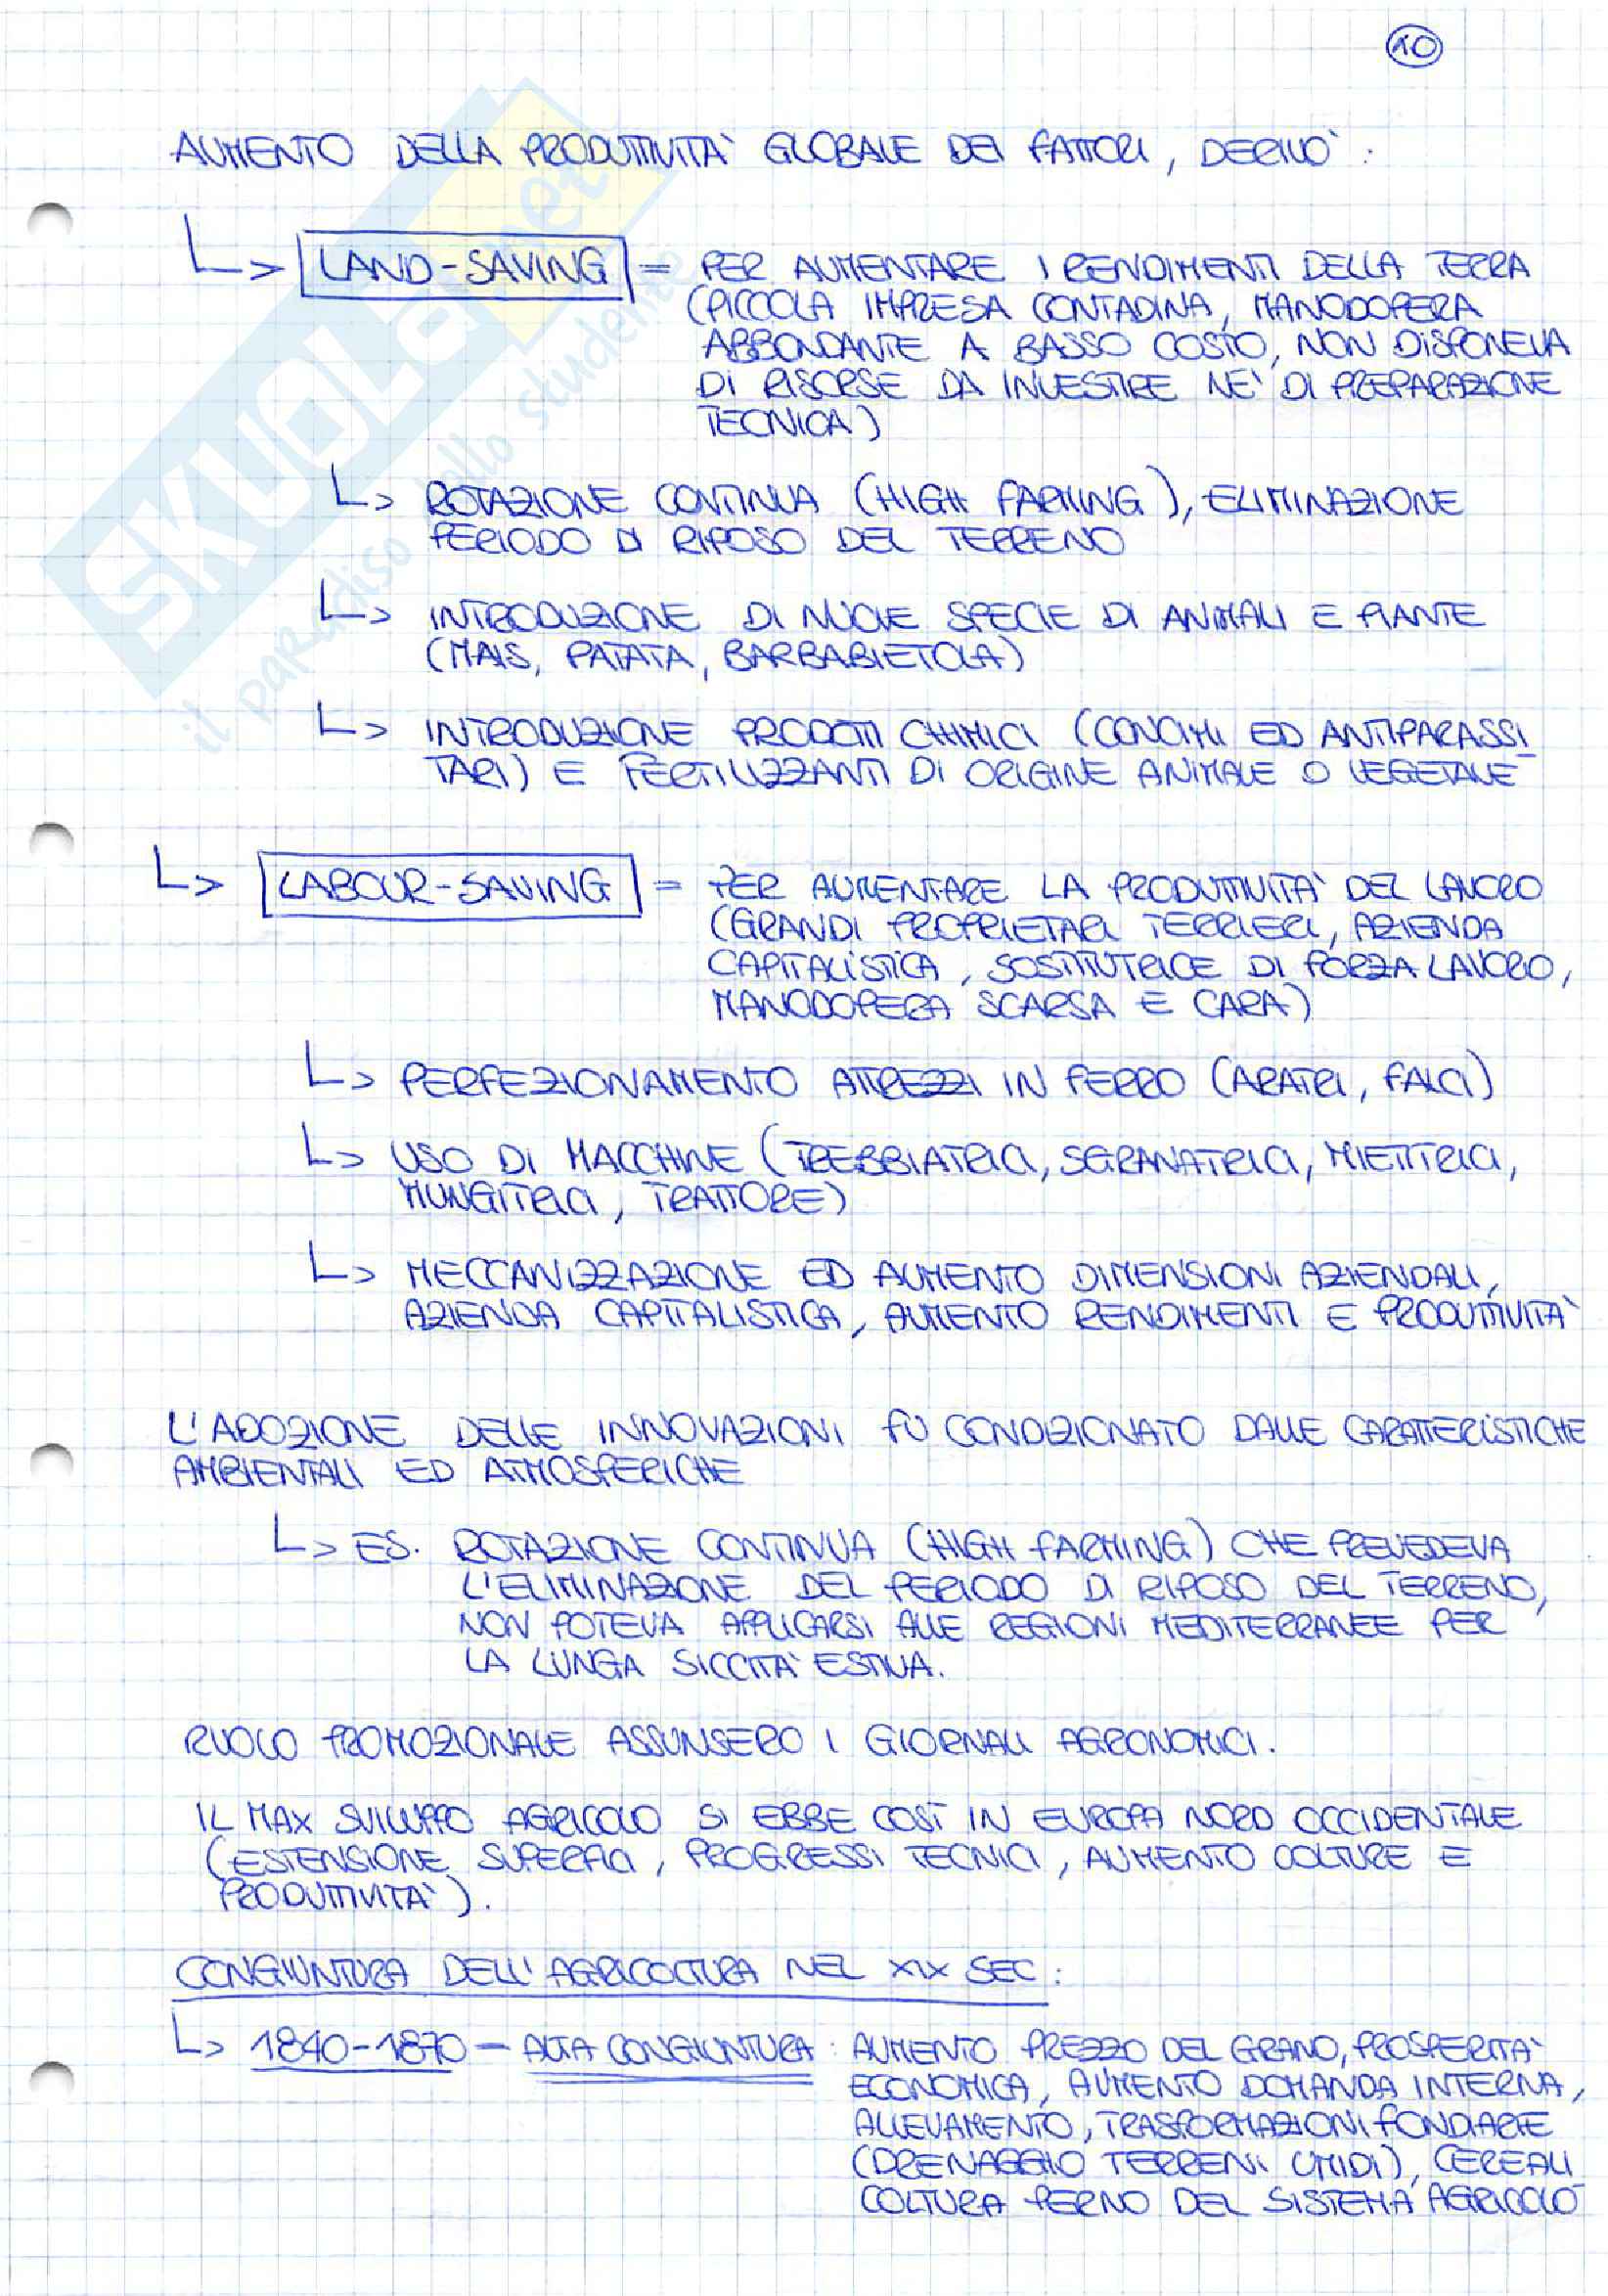 10
AUMENTO DELLA PRODUTTIVITA' GLOBALE DEI FATTORI, DERIVÒ :
↳ LAND-SAVING = PER AUMENTARE I RENDIMENTI DELLA TERRA
(PICCOLA IMPRESA CONTADINA, MANODOPERA
ABBONDANTE A BASSO COSTO, NON DISPONEVA
DI RISORSE DA INVESTIRE NE' DI PREPARAZIONE
TECNICA)
↳ ROTAZIONE CONTINUA (HIGH FARMING), ELIMINAZIONE
PERIODO DI RIPOSO DEL TERRENO
↳ INTRODUZIONE DI NUOVE SPECIE DI ANIMALI E PIANTE
(MAIS, PATATA, BARBABIETOLA)
↳ INTRODUZIONE PRODOTTI CHIMICI (CONCIMI ED ANTIPARASSI
TARI) E FERTILIZZANTI DI ORIGINE ANIMALE O VEGETALE
↳ LABOUR-SAVING = PER AUMENTARE LA PRODUTTIVITA' DEL LAVORO
(GRANDI PROPRIETARI TERRIERI, AZIENDA
CAPITALISTICA, SOSTITUTRICE DI FORZA LAVORO,
MANODOPERA SCARSA E CARA)
↳ PERFEZIONAMENTO ATTREZZI IN FERRO (ARATRI, FALCI)
↳ USO DI MACCHINE (TREBBIATRICI, SGRANATRICI, MIETITRICI,
MUNGITRICI, TRATTORE)
↳ MECCANIZZAZIONE ED AUMENTO DIMENSIONI AZIENDALI,
AZIENDA CAPITALISTICA, AUMENTO RENDIMENTI E PRODUTTIVITA'
L'ADOZIONE DELLE INNOVAZIONI FU CONDIZIONATO DALLE CARATTERISTICHE
AMBIENTALI ED ATMOSFERICHE
↳ ES. ROTAZIONE CONTINUA (HIGH FARMING) CHE PREVEDEVA
L'ELIMINAZIONE DEL PERIODO DI RIPOSO DEL TERRENO,
NON POTEVA APPLICARSI ALLE REGIONI MEDITERRANEE PER
LA LUNGA SICCITA' ESTIVA.
RUOLO PROMOZIONALE ASSUNSERO I GIORNALI AGRONOMICI.
IL MAX SVILUPPO AGRICOLO SI EBBE COSÌ IN EUROPA NORD OCCIDENTALE
(ESTENSIONE SUPERFICI, PROGRESSI TECNICI, AUMENTO COLTURE E
PRODUTTIVITA').
CONGIUNTURA DELL'AGRICOLTURA NEL XIX SEC :
↳ 1840-1870 - ALTA CONGIUNTURA : AUMENTO PREZZO DEL GRANO, PROSPERITA'
ECONOMICA, AUMENTO DOMANDA INTERNA,
ALLEVAMENTO, TRASFORMAZIONI FONDIARIE
(DRENAGGIO TERRENI UMIDI), CEREALI
COLTURA PERNO DEL SISTEMA AGRICOLO
SKUOLA.net
il paradiso dello studente